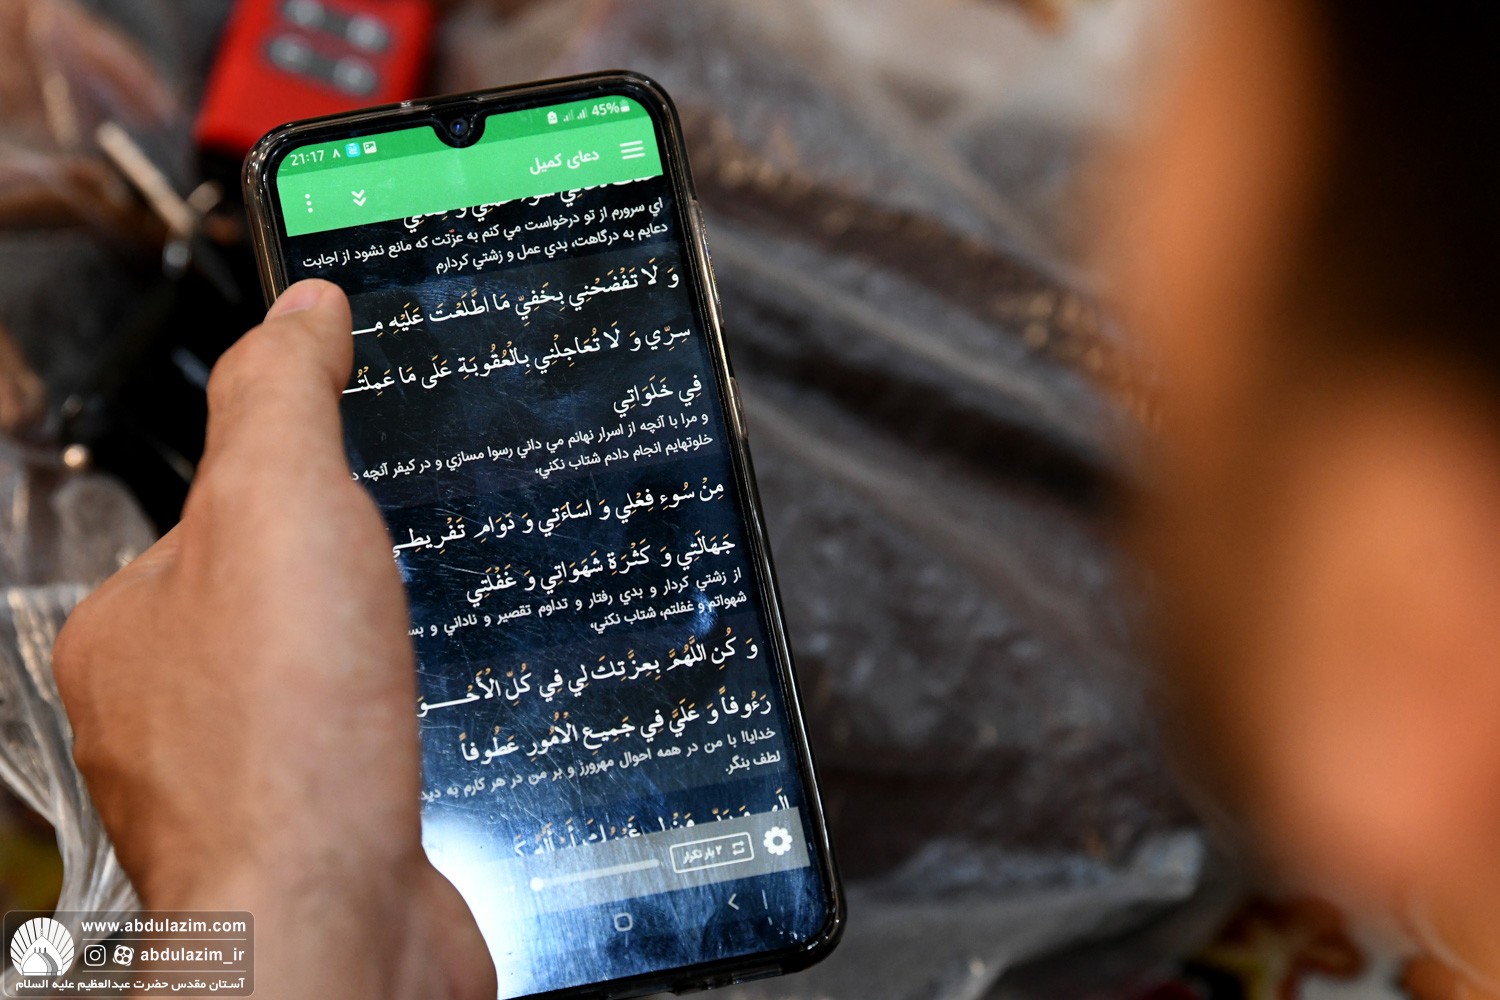 21:17 ۸ 45%
دعای کمیل
اي سرورم از تو درخواست مي كنم به عزّتت كه مانع نشود از اجابت
دعايم به درگاهت، بدي عمل و زشتي كردارم
وَ لَا تَفْضَحْنِي بِخَفِيِّ مَا اطَّلَعْتَ عَلَيْهِ مِـ
سِرِّي وَ لَا تُعَاجِلْنِي بِالْعُقُوبَةِ عَلَى مَا عَمِلْتُـ
فِي خَلَوَاتِي
و مرا با آنچه از اسرار نهانم مي داني رسوا مسازي و در كيفر آنچه د
خلوتهايم انجام دادم شتاب نكني،
مِنْ سُوءِ فِعْلِي وَ اسَاءَتِي وَ دَوَامِ تَفْرِيطِي
جَهَالَتِي وَ كَثْرَةِ شَهَوَاتِي وَ غَفْلَتِي
از زشتي كردار و بدي رفتار و تداوم تقصير و ناداني و بسـ
شهواتم و غفلتم، شتاب نكني،
وَ كُنِ اللَّهُمَّ بِعِزَّتِكَ لِي فِي كُلِّ الْأَحْـوَ
رَءُوفاً وَ عَلَيَّ فِي جَمِيعِ الْاُمُورِ عَطُوفاً
خدايا! با من در همه احوال مهرورز و بر من در هر كارم به ديد
لطف بنگر.
۲ بار تکرار
www.abdulazim.com
abdulazim_ir
آستان مقدس حضرت عبدالعظیم علیه السلام